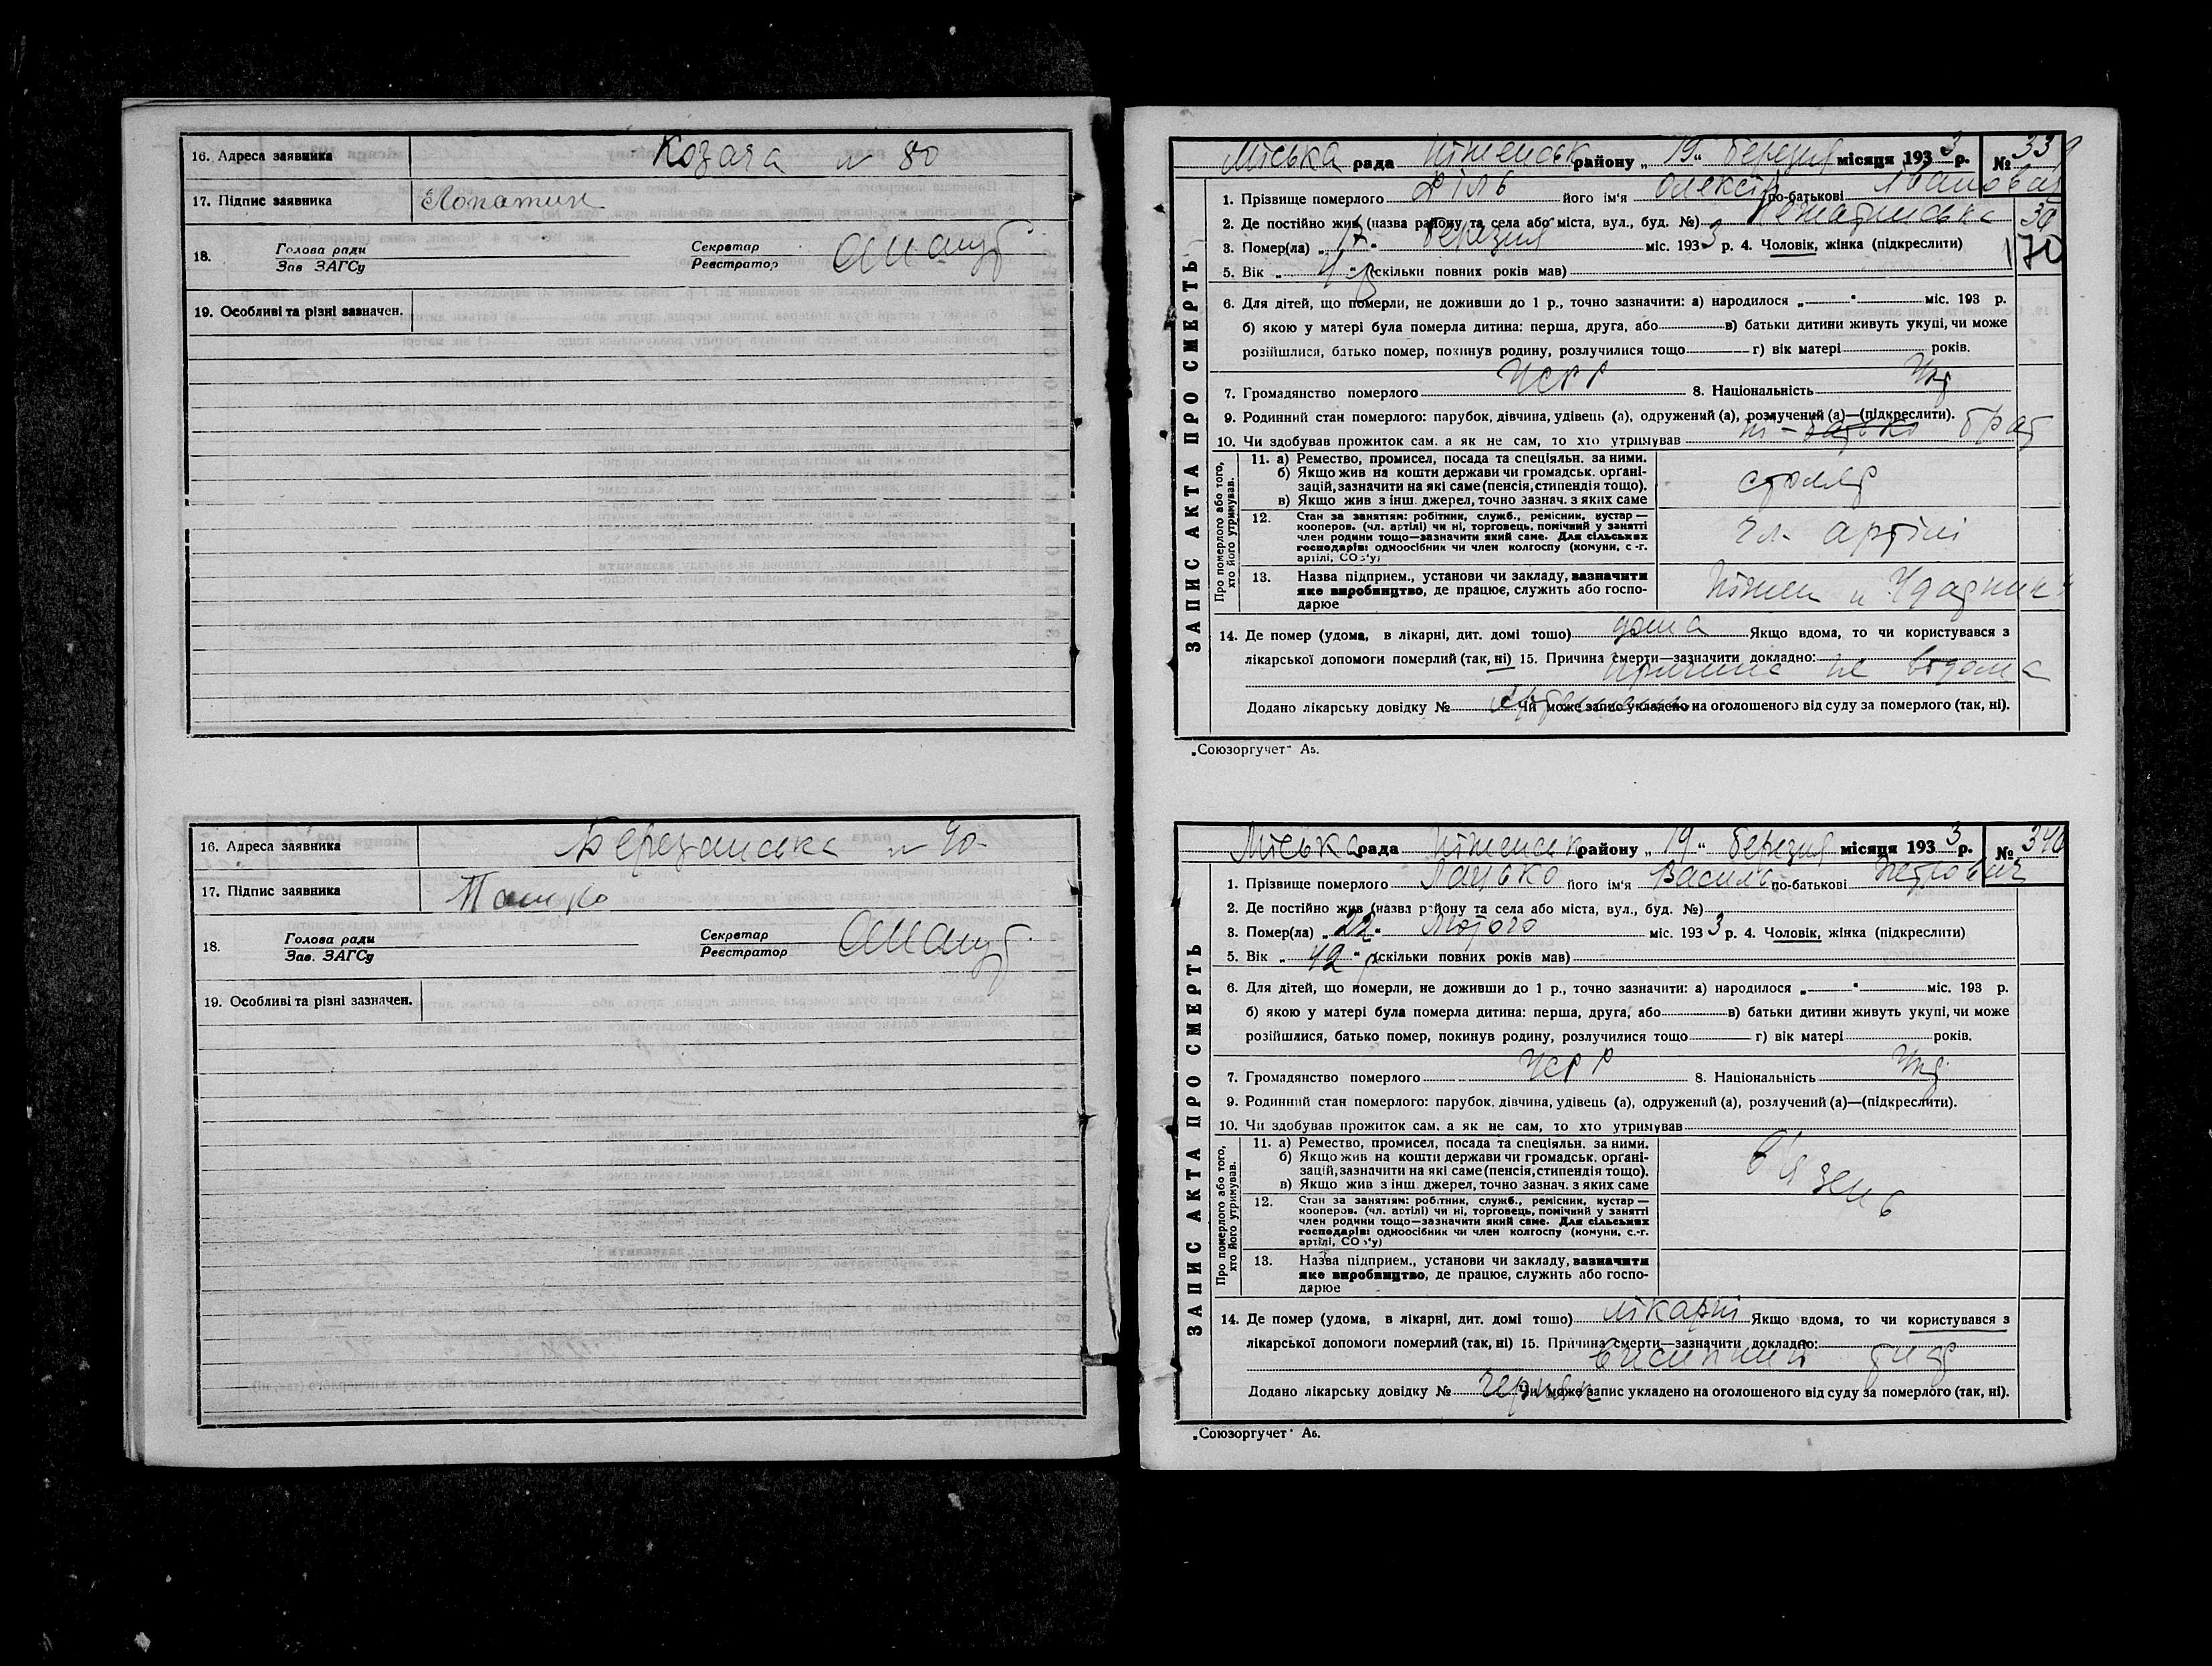 16. Адреса заявника Козача № 80
17. Підпис заявника Лопатин
18. Голова ради
Зав ЗАГСу
Секретар
Реєстратор
19. Особливі та різні зазначен.
16. Адреса заявника Березанська № 40
17. Підпис заявника
18. Голова ради
Зав. ЗАГСу
Секретар
Реєстратор
19. Особливі та різні зазначен.
ЗАПИС АКТА ПРО СМЕРТЬ
Міська рада Ніженськ району „19“ березня місяця 1933 р. № 339
1. Прізвище померлого його ім'я Олексій по-батькові Іванович
2. Де постійно жив (назва району та села або міста, вул., буд. №) 36
3. Помер(ла) „17“ березня міс. 1933 р. 4. Чоловік, жінка (підкреслити) 170
5. Вік „ “ (скільки повних років мав)
6. Для дітей, що померли, не доживши до 1 р., точно зазначити: а) народилося „ “ міс. 193 р.
б) якою у матері була померла дитина: перша, друга, або в) батьки дитини живуть укупі, чи може
розійшлися, батько помер, покинув родину, розлучилися тощо г) вік матері років.
7. Громадянство померлого УСРР 8. Національність Укр
9. Родинний стан померлого: парубок, дівчина, удівець (а), одружений (а), розлучений (а)—(підкреслити).
10. Чи здобував прожиток сам, а як не сам, то хто утримував ні - батько брат
Про померлого або того, хто його утримував.
11. а) Ремество, промисел, посада та спеціяльн. за ними.
б) Якщо жив на кошти держави чи громадськ. орґані-
зацій, зазначити на які саме (пенсія, стипендія тощо).
в) Якщо жив з інш. джерел, точно зазнач. з яких саме
столяр
12. Стан за заняттям: робітник, служб., ремісник, кустар—
кооперов. (чл. артілі) чи ні, торговець, помічний у занятті
член родини тощо—зазначити який саме. Для сільських
господарів: одноосібник чи член колгоспу (комуни, с.-г.
артілі, СОЗ'у)
чл. артілі
13. Назва підприєм., установи чи закладу, вазначити
яке виробництво, де працює, служить або госпо-
дарює
14. Де помер (удома, в лікарні, дит. домі тощо) дома Якщо вдома, то чи користувався з
лікарської допомоги померлий (так, ні) 15. Причина смерти—зазначити докладно:
причина не відома
Додано лікарську довідку № Чи може запис укладено на оголошеного від суду за померлого (так, ні).
„Союзоргучет“ А5.
ЗАПИС АКТА ПРО СМЕРТЬ
Міська рада Ніженськ району „19“ березня місяця 1933 р. № 340
1. Прізвище померлого Лацько його ім'я Василь по-батькові Петрович
2. Де постійно жив (назва району та села або міста, вул., буд. №)
3. Помер(ла) „22“ Лютого міс. 1933 р. 4. Чоловік, жінка (підкреслити)
5. Вік „42“ р (скільки повних років мав)
6. Для дітей, що померли, не доживши до 1 р., точно зазначити: а) народилося „ “ міс. 193 р.
б) якою у матері була померла дитина: перша, друга, або в) батьки дитини живуть укупі, чи може
розійшлися, батько помер, покинув родину, розлучилися тощо г) вік матері років.
7. Громадянство померлого УСРР 8. Національність Укр
9. Родинний стан померлого: парубок, дівчина, удівець (а), одружений (а), розлучений (а)—(підкреслити).
10. Чи здобував прожиток сам, а як не сам, то хто утримував
Про померлого або того, хто його утримував.
11. а) Ремество, промисел, посада та спеціяльн. за ними.
б) Якщо жив на кошти держави чи громадськ. орґані-
зацій, зазначити на які саме (пенсія, стипендія тощо).
в) Якщо жив з інш. джерел, точно зазнач. з яких саме
в'язень
12. Стан за заняттям: робітник, служб., ремісник, кустар—
кооперов. (чл. артілі) чи ні, торговець, помічний у занятті
член родини тощо—зазначити який саме. Для сільських
господарів: одноосібник чи член колгоспу (комуни, с.-г.
артілі, СОЗ'у)
13. Назва підприєм., установи чи закладу, вазначити
яке виробництво, де працює, служить або госпо-
дарює
14. Де помер (удома, в лікарні, дит. домі тощо) лікарні Якщо вдома, то чи користувався з
лікарської допомоги померлий (так, ні) 15. Причина смерти—зазначити докладно:
висипний тиф
Додано лікарську довідку № Чи може запис укладено на оголошеного від суду за померлого (так, ні).
„Союзоргучет“ А5.